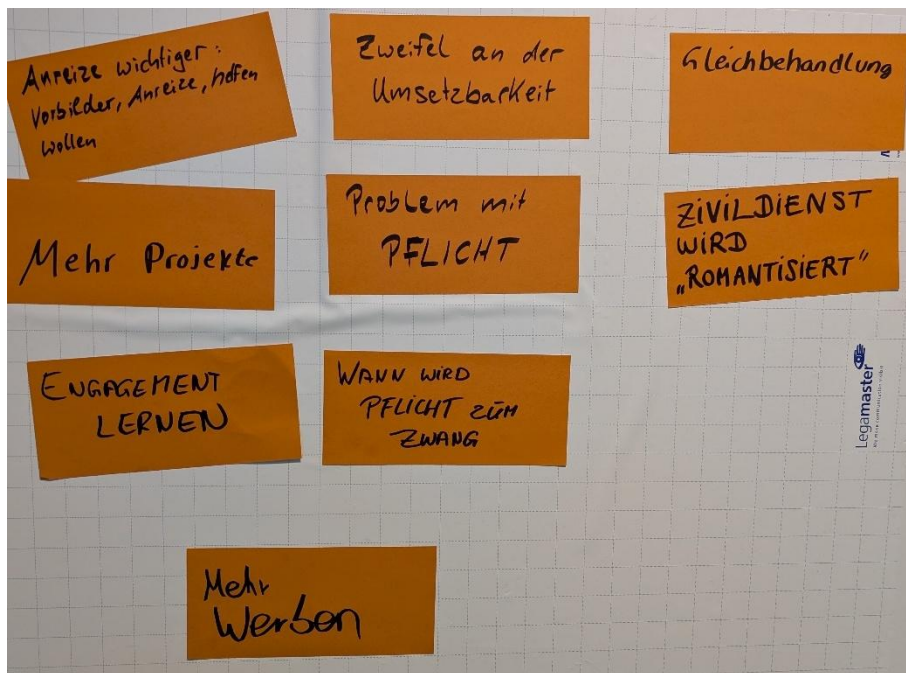 Anreize wichtiger:
Vorbilder, Anreize, helfen
wollen
Zweifel an der
Umsetzbarkeit
Gleichbehandlung
Mehr Projekte
Problem mit
PFLICHT
ZiViLDiENST
WiRD
„ROMANTiSiERT"
ENGAGEMENT
LERNEN
WANN WiRD
PFLiCHT ZUM
ZWANG
Mehr
Werben
Legamaster